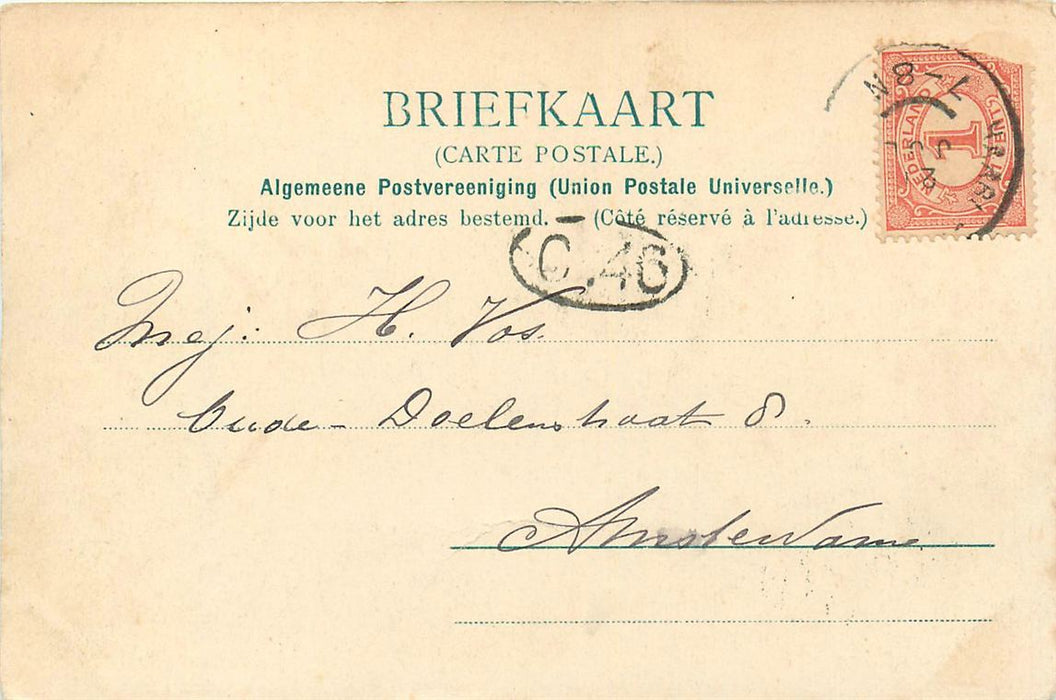 BRIEFKAART
(CARTE POSTALE.)
Algemeene Postvereeniging (Union Postale Universelle.)
Zijde voor het adres bestemd. — (Côté réservé à l'adresse.)
NEDERLAND
1
CENT
7-8N
C.46
Mej: H. Vos.
Oude-Doelenstraat 8.
Amsterdam.